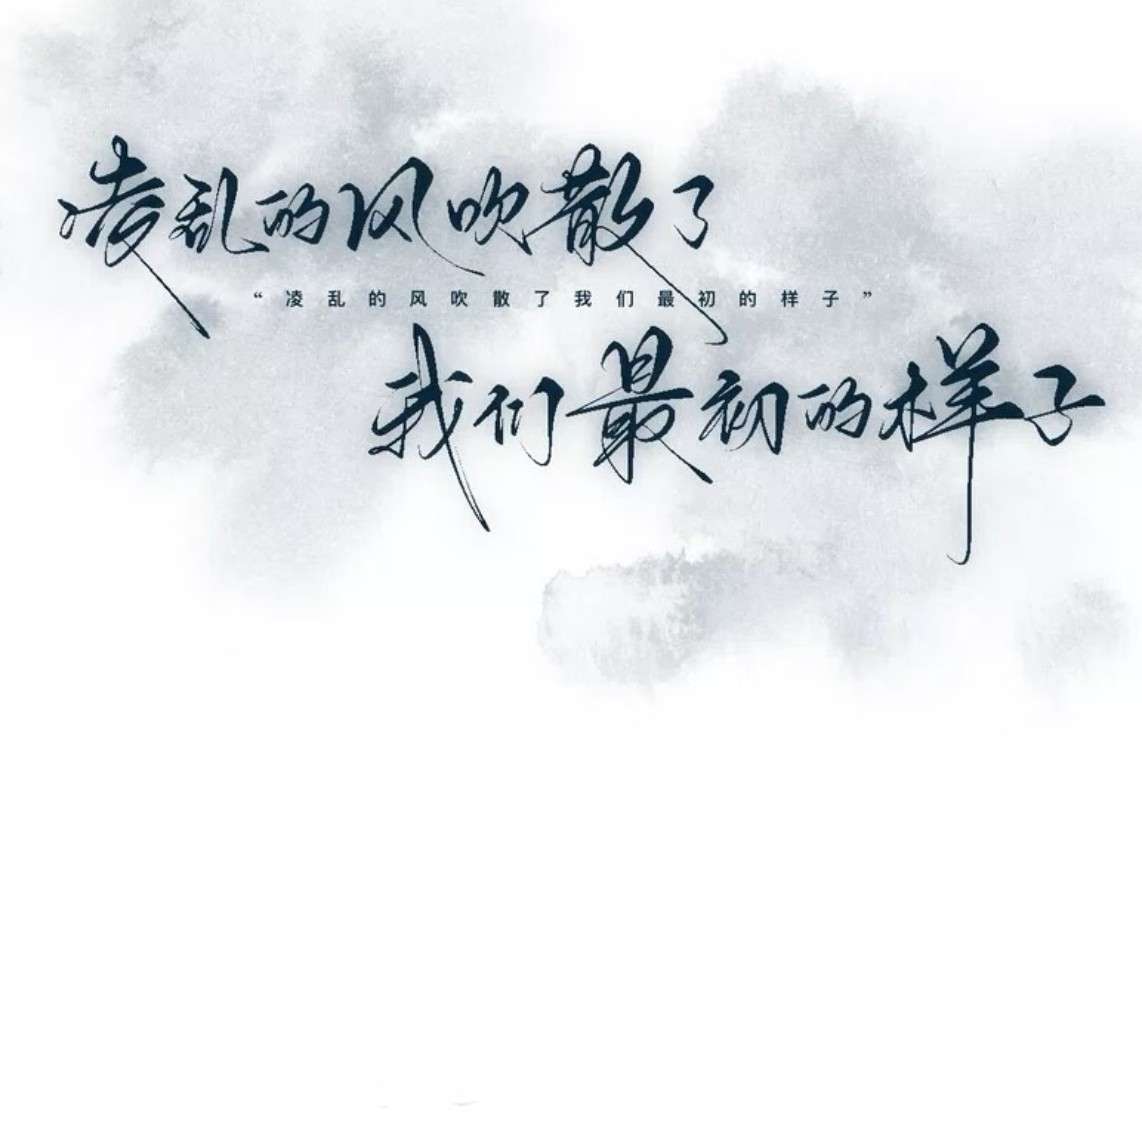 凌乱的风吹散了
“凌乱的风吹散了我们最初的样子”
我们最初的样子